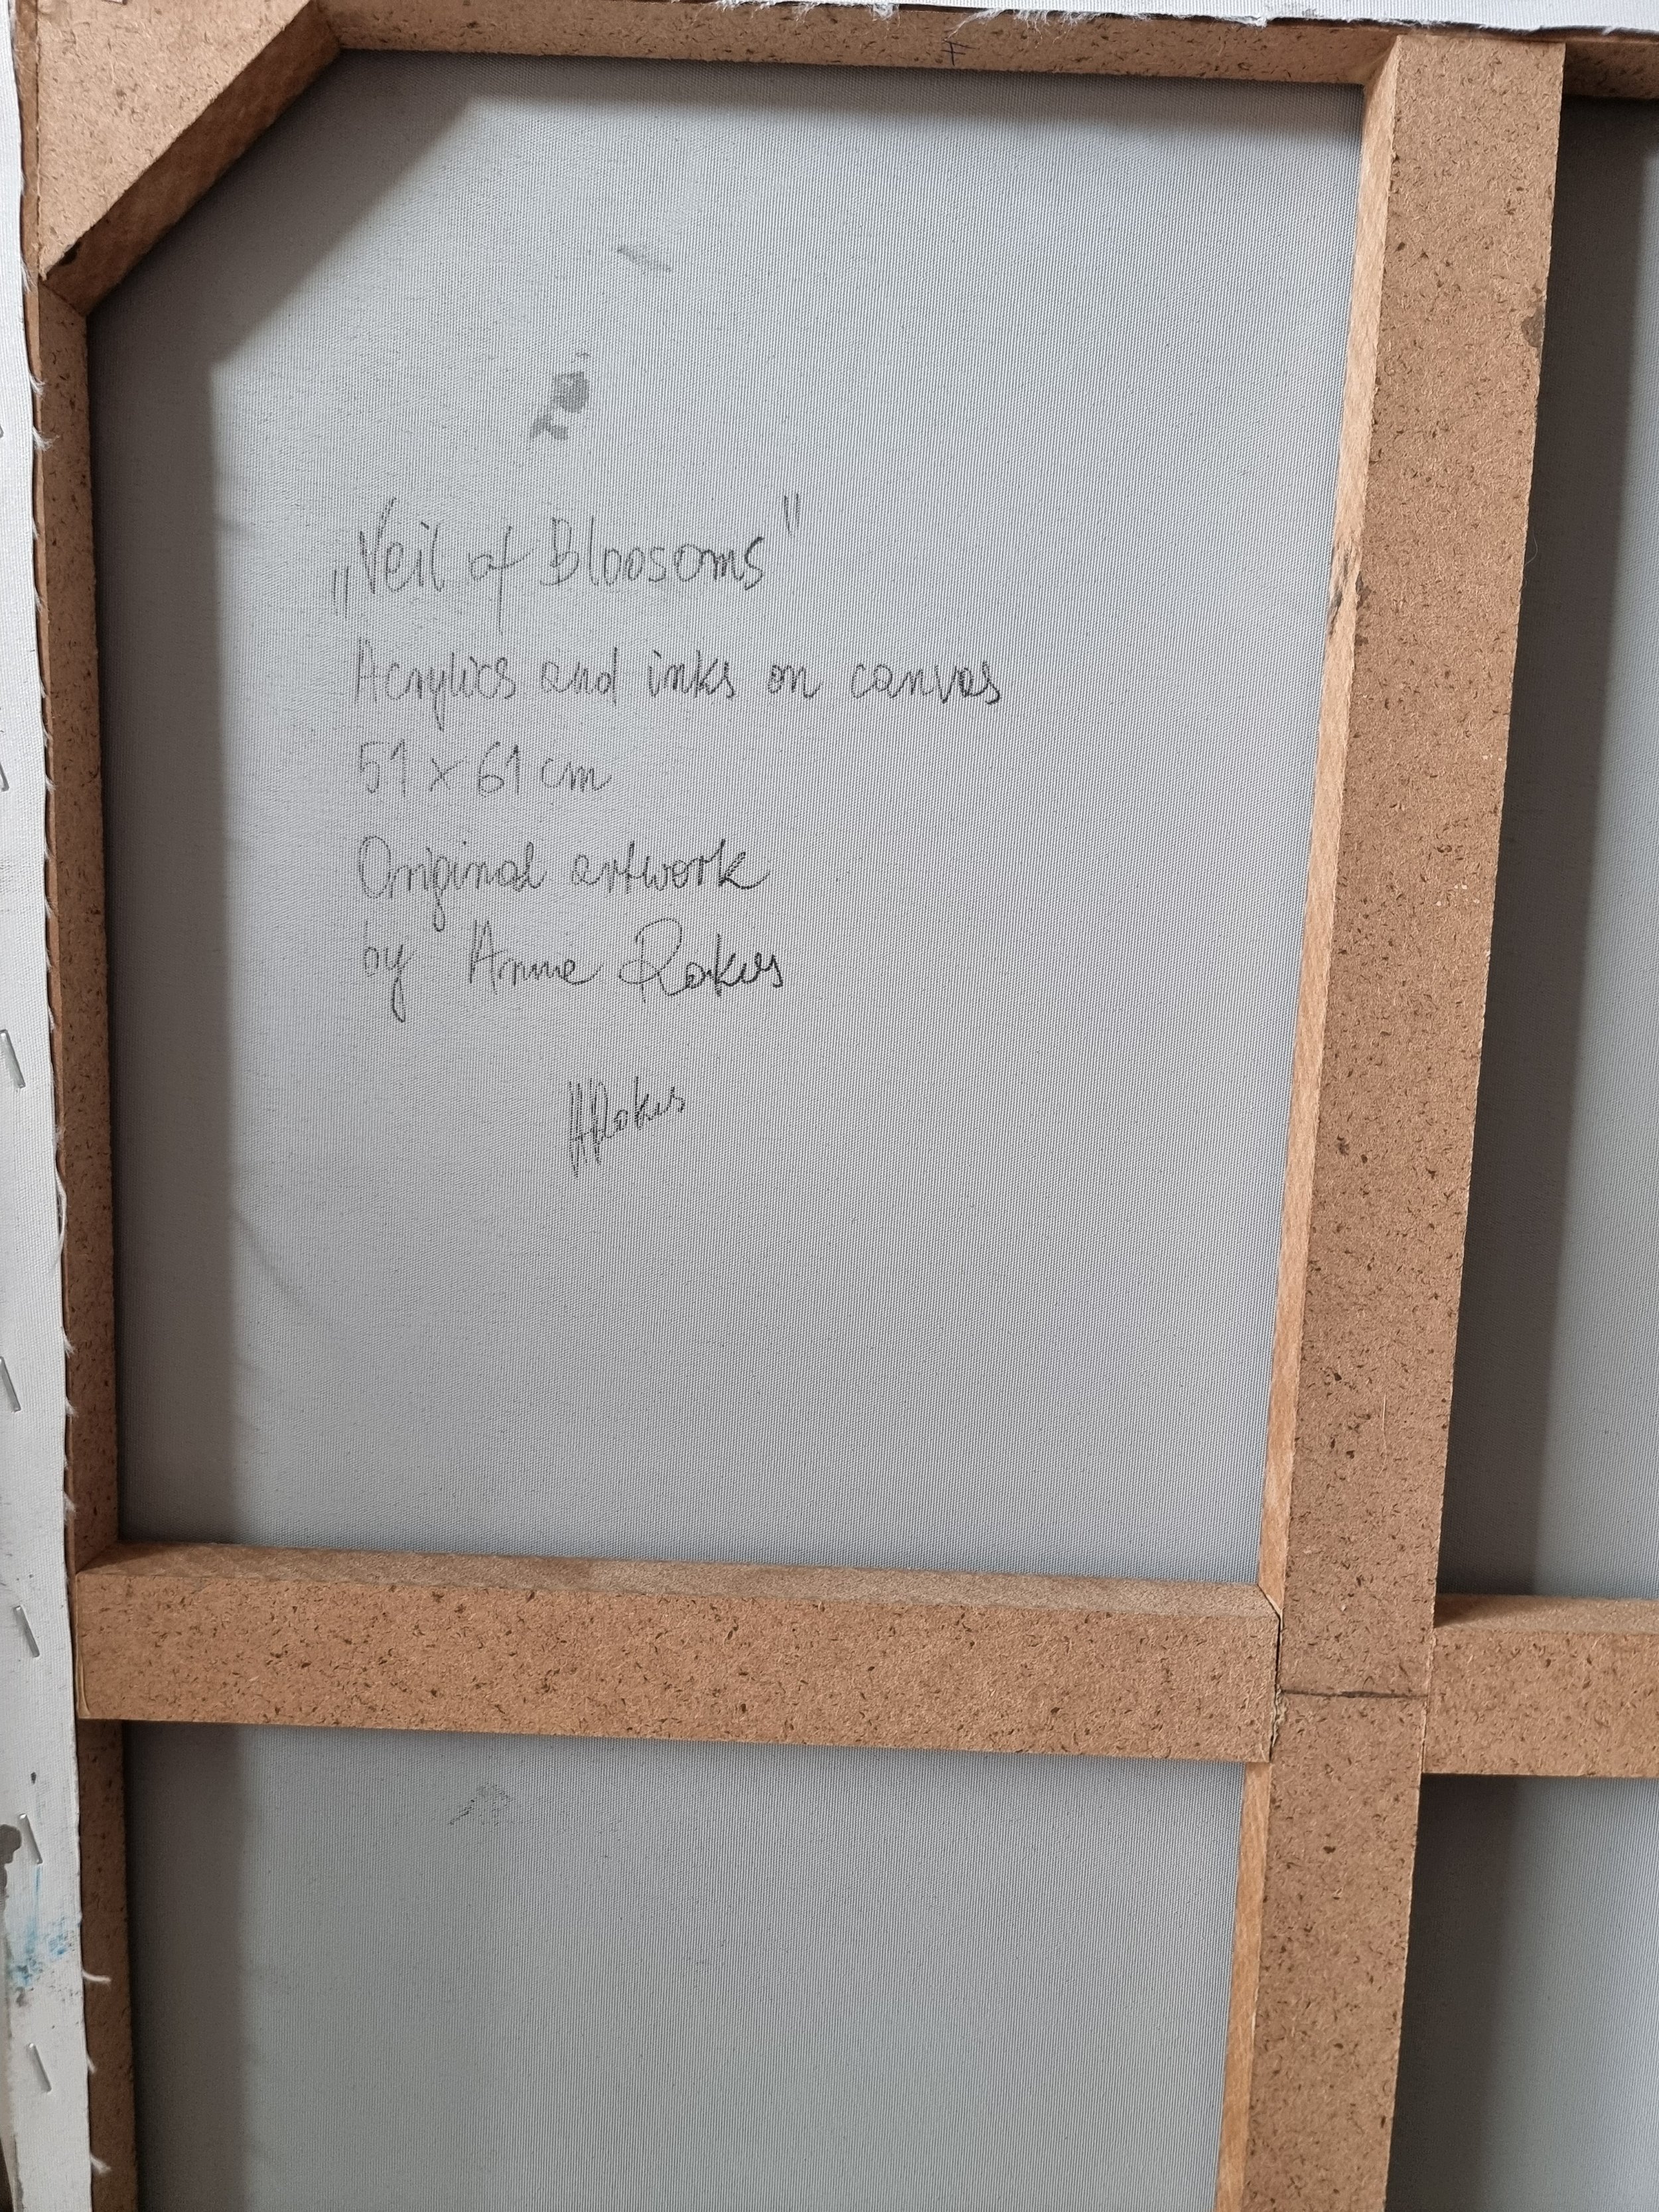 „Veil of Bloosoms"
Acrylics and inks on canvas
51 x 61 cm
Original artwork
by Anne Rokus
ARokus